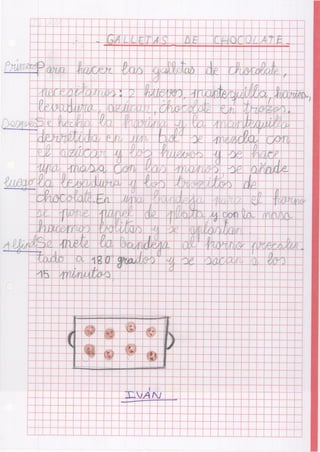 GALLETAS DE CHOCOLATE
Primero Para hacer las galletas de chocolate,
necesitamos: 2 huevos, mantequilla, harina,
levadura, azúcar, chocolate en trozos.
Después Se hecha la harina y la mantequilla
derretida en un bol, se mezcla con
el azúcar y los huevos y se hace
una masa con las manos se añade
luego la levadura y los trocitos de
chocolate. En una bandeja para el horno
se pone papel de y con la masa
hacemos bolitas y se aplastan
Al final Se mete la bandeja al horno precalen-
tado a 180 grados y se sacan a los
15 minutos
IVÁN